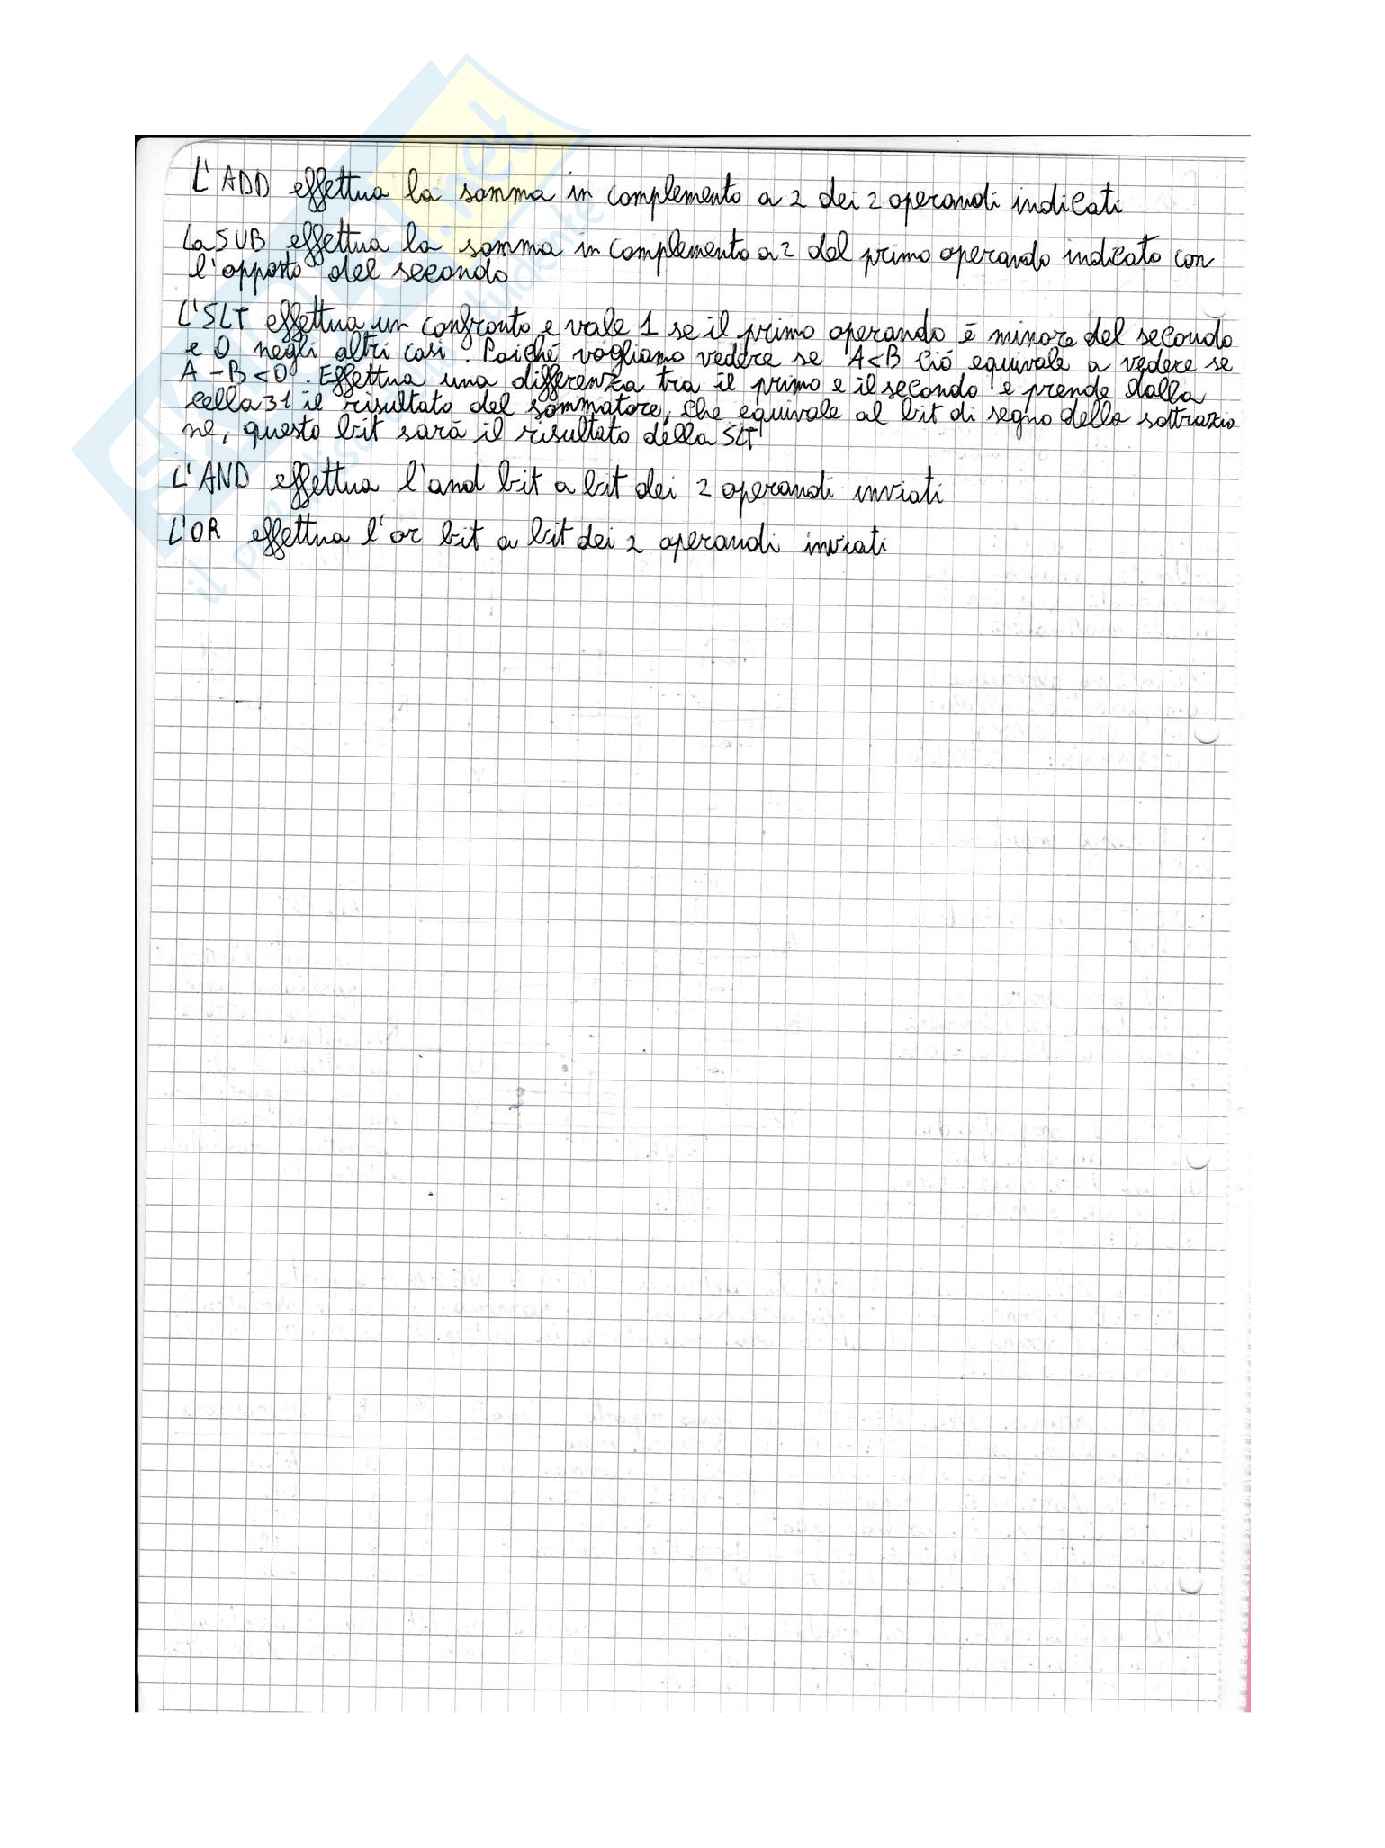 L'ADD effettua la somma in complemento a 2 dei 2 operandi indicati
La SUB effettua la somma in complemento a 2 del primo operando indicato con
l'opposto del secondo
L'SLT effettua un confronto e vale 1 se il primo operando é minore del secondo
e 0 negli altri casi. Poiché vogliamo vedere se A<B ció equivale a vedere se
A-B<0. Effettua una differenza tra il primo e il secondo e prende dalla
cella 31 il risultato del sommatore, che equivale al bit di segno della sottrazio
ne, questo bit sará il risultato della SLT
L'AND effettua l'and bit a bit dei 2 operandi inviati
L'OR effettua l'or bit a bit dei 2 operandi inviati